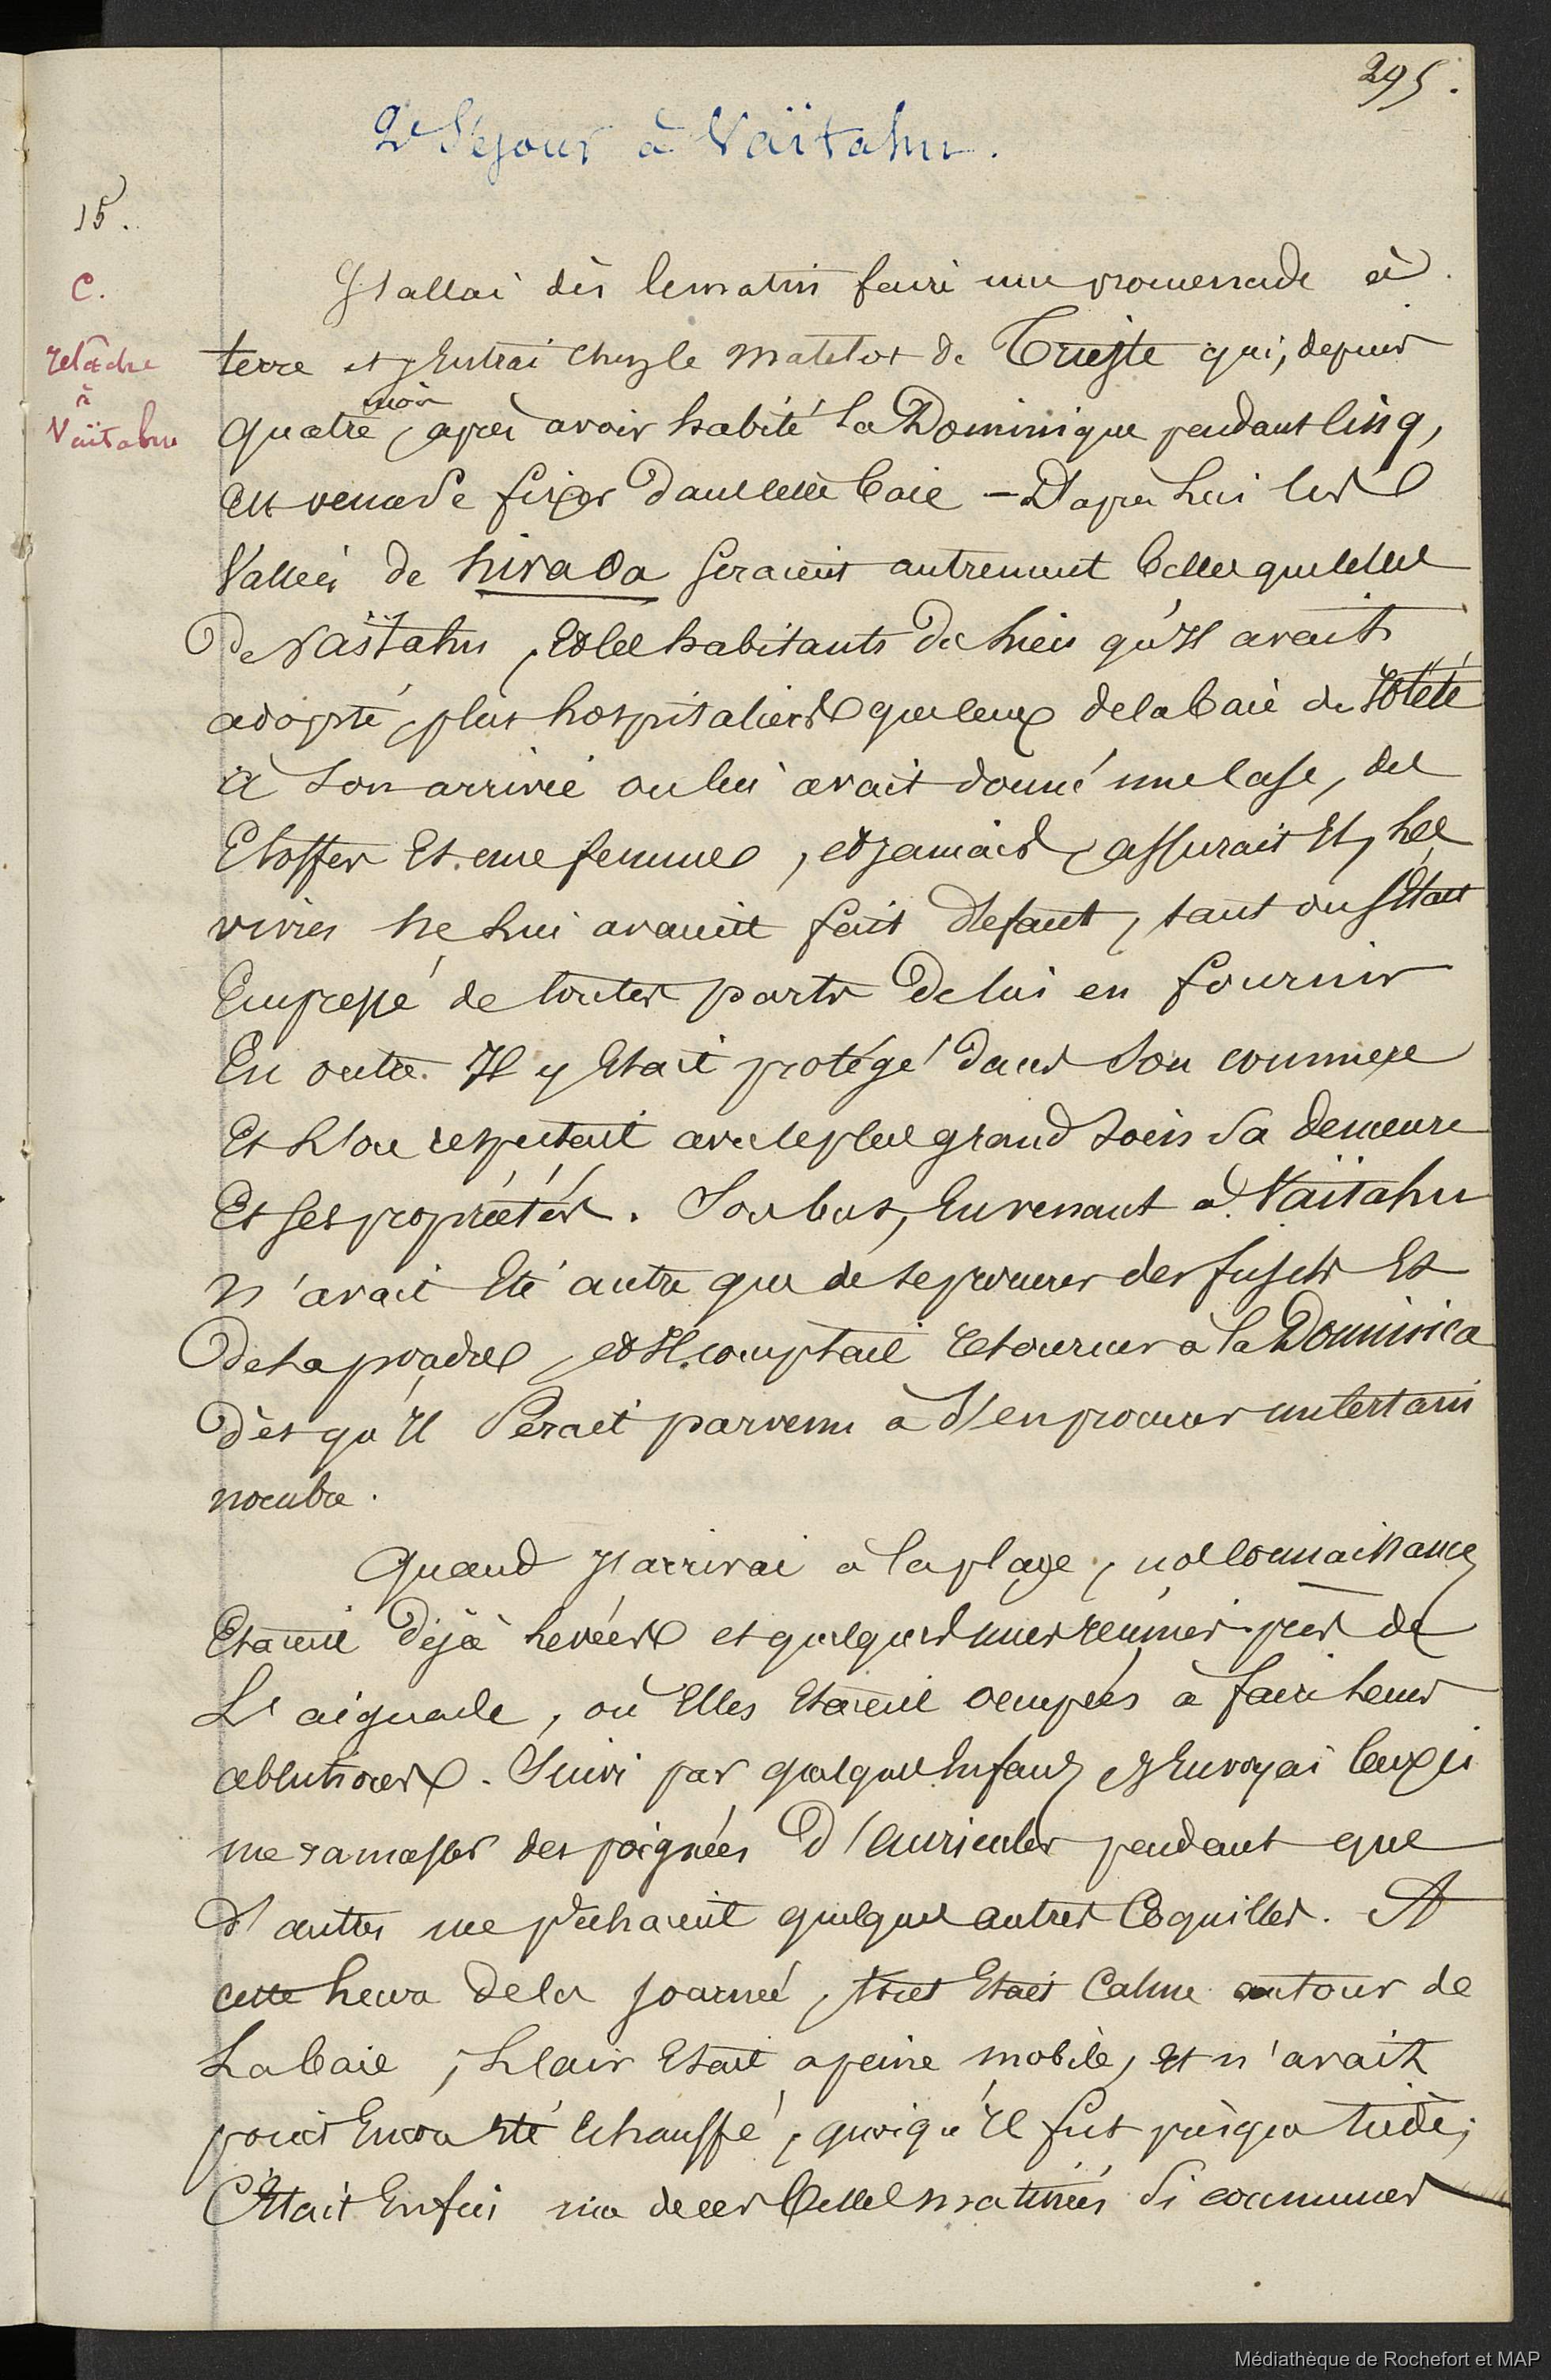 295.
2e Séjour à Vaïtahu.
15.
C.
relâche
à
Vaïtahu
J'allai dès le matin faire une promenade à
terre et j'Entrai chez le matelot de Trieste qui, depuis
quatre mois, après avoir habité La Dominique pendant Cinq,
est venu se fixer dans cette baie – D'après lui les
Vallées de hivaoa seraient autrement belles que celles
De Vaïtahu, Et les habitants du lieu qu'Il avait
adopté, plus hospitaliers que ceux de la baie de
à son arrivée on lui avait donné une Case, des
Etoffes Et une femme, et jamais, assurait Il, les
vivres ne lui avaient fait défaut, tant on s'était
Empressé de toutes parts De lui en fournir
En outre Il y Etait protégé dans Son commerce
Et L'on respectait avec le plus grand soin sa demeure
Et ses propriétés. Son but, En venant à Vaïtahu
n'avait Eté autre que de se procurer des fusils Et
De la poudre, et Il comptait retourner à la Dominica
Dès qu'Il Serait parvenu à S'en procurer un certain
nombre.
Quand J'arrivai à la plage, nos connaissances
Etaient Déjà levées et quelques unes réunies près de
L'aiguade, où Elles Etaient occupées à faire leurs
ablutions. Suivi par quelques Enfants J'Envoyai ceux ci
me ramasser des poignées D'auricules pendant que
D'autres me pêchaient quelques autres Coquilles. A
cette heure De la journée, tout Etait Calme autour de
La baie, L'air Etait à peine mobile, et n'avait
point Encore été Echauffé, quoiqu'Il fut presque tiède;
C'Etait Enfin une de ces belles matinées Si communes
Médiathèque de Rochefort et MAP